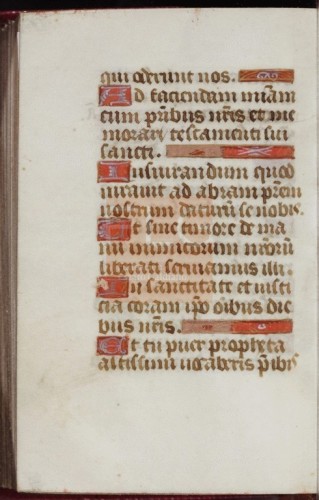 qui oderunt nos.
Ad faciendam miam
cum pribus nris et me
morari testamenti sui
sancti.
Iusiurandum quod
iuravit ad abram prem
nostrum daturu se nobis.
Ut sine timore de ma
nu inimicorum nroru
liberati serviamus illi.
In sanctitate et iusti
cia coram ipo oibus die
bus nris.
Et tu puer propheta
altissimi vocaberis pibis